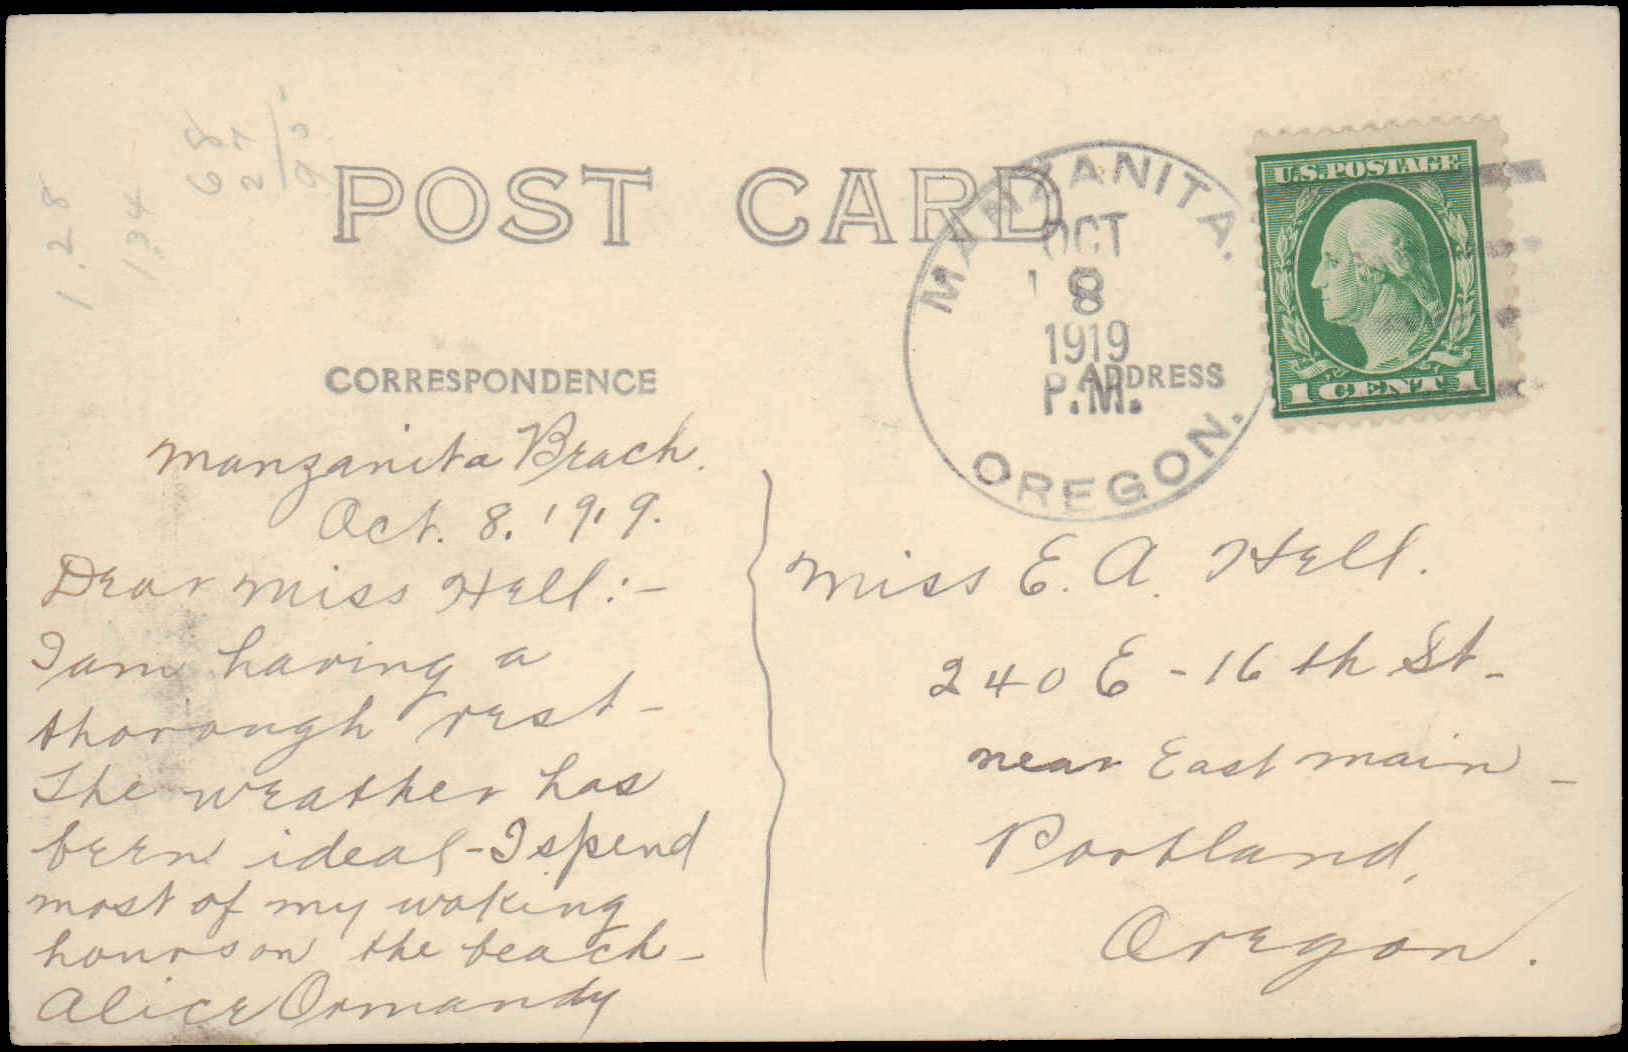 POST CARD
MANZANITA.
OCT
8
1919
P.M.
OREGON.
U.S. POSTAGE
1 CENT 1
1.28
1.34
CORRESPONDENCE
ADDRESS
Manzanita Beach.
Oct. 8. 1919.
Dear Miss Hell:-
I am having a
thorough rest-
The weather has
been ideal-I spend
most of my waking
hours on the beach-
Alice Ormandy
Miss E. A. Hell.
240 E-16th St-
near East Main-
Portland,
Oregon.